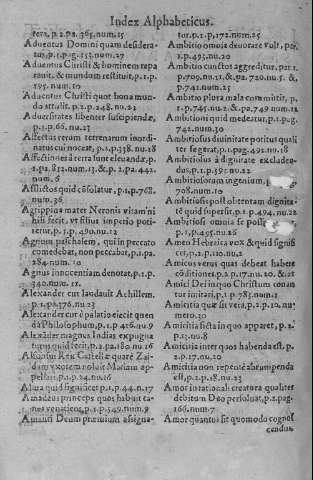 Index Alphabeticus.
tera, p.2.pa.365.num.15
Aduentus Domini quam desidera-
tus, p.1.pag.153.num.27
Aduentus Christi & hominem repa
rauit, & mundum restituit, p.1.p.
195.num.10
Aduentus Christi quot bona mun-
do attulit. p.1.p.248.nu.22
Aduersitates libenter suscipiendæ,
p.1.p.66.nu.21
Affectus rerum terrenarum inordi-
natus cui noceat, p.1.p.338.nu.18
Affectiones à terra sunt eleuandæ, p.
1.pa.832.num.13.&.p.2.pa.442.
num.6
Afflictos quid cõsolatur, p.1.p.768.
num.36
Agrippina mater Neronis vitam ni
hili fecit, vt filius imperio poti-
retur, p.1.p.490.nu.12
Agnum paschalem, qui in peccato
comedebat, non peccabat, p.1.pa.
284.num.10
Agnus innocentiam denotat, p.1.p.
340.num.11
Alexander cur laudauit Achillem.
p.1.pa.176.nu.23
Alexander cur è palatio eiecit quen
dã Philosophum, p.1.p.416.nu.9
Alexander magnus Indias expugna
turus quid fecit, p.2.pa.180.nu.16
Alfonsus Rex Castellæ quare Zai-
dam vxorem noluit Mariam ap-
pellari, p.1.p.24.nu.16
Alua quid significet, p.1.p.44.n.17
Amadeus princeps quos habuit ca-
nes venaticos, p.1.p.549.num.9
Amanti Deum præmium assigna-
tur, p.1.p.172.num.25
Ambitio omnia deuorare vult, par.
1.p.493.nu.20
Ambitio cunctos aggreditur, par.1.
p.709.nu.31.&.pa.720.nu.5.&,
p.741.num.25
Ambitio plora mala committit, p.
1.p.745.nu.2.&.p.749.num.12
Ambitioni quid medeatur, p.1.pag.
742.num.30
Ambitiosus diuinitate potitus quali
ter se gerat, p.1.pag.492.nu.18
Ambitiosus à dignitate excluden-
dus, p.1.p.591.nu.22
Ambitiosorum ingenium,
708.num.10
Ambitiosis post obtentam dignita-
tẽ quid supersit, p.1.p.494.nu.22
Ambitiosi omnia se posse
1.p.495.nu.26
Amen Hebraica vox & quid signifi
cet, p.2.p.110.nu.2
Amicus verus quas debeat habere
cõditiones, p.2.p.17.nu.20.&.21
Amici Dei in quo Christum conan
tur imitari, p.1.p.781.num.1
Amicitia quæ sit vera, p.2.p.10.nu-
mero.30
Amicitia ficta in quo apparet, p.2.
p.13.nu.8
Amicitia inter quos habenda est, p.
2.p.17.nu.20
Amicitia non repentè abrumpenda
est, p.2.p.18.nu.23
Amor irrationali creatura qualiter
debitum Deo persoluat, p.2.pag.
166.num.7
Amor quantus sit quomodo cognos
cendus